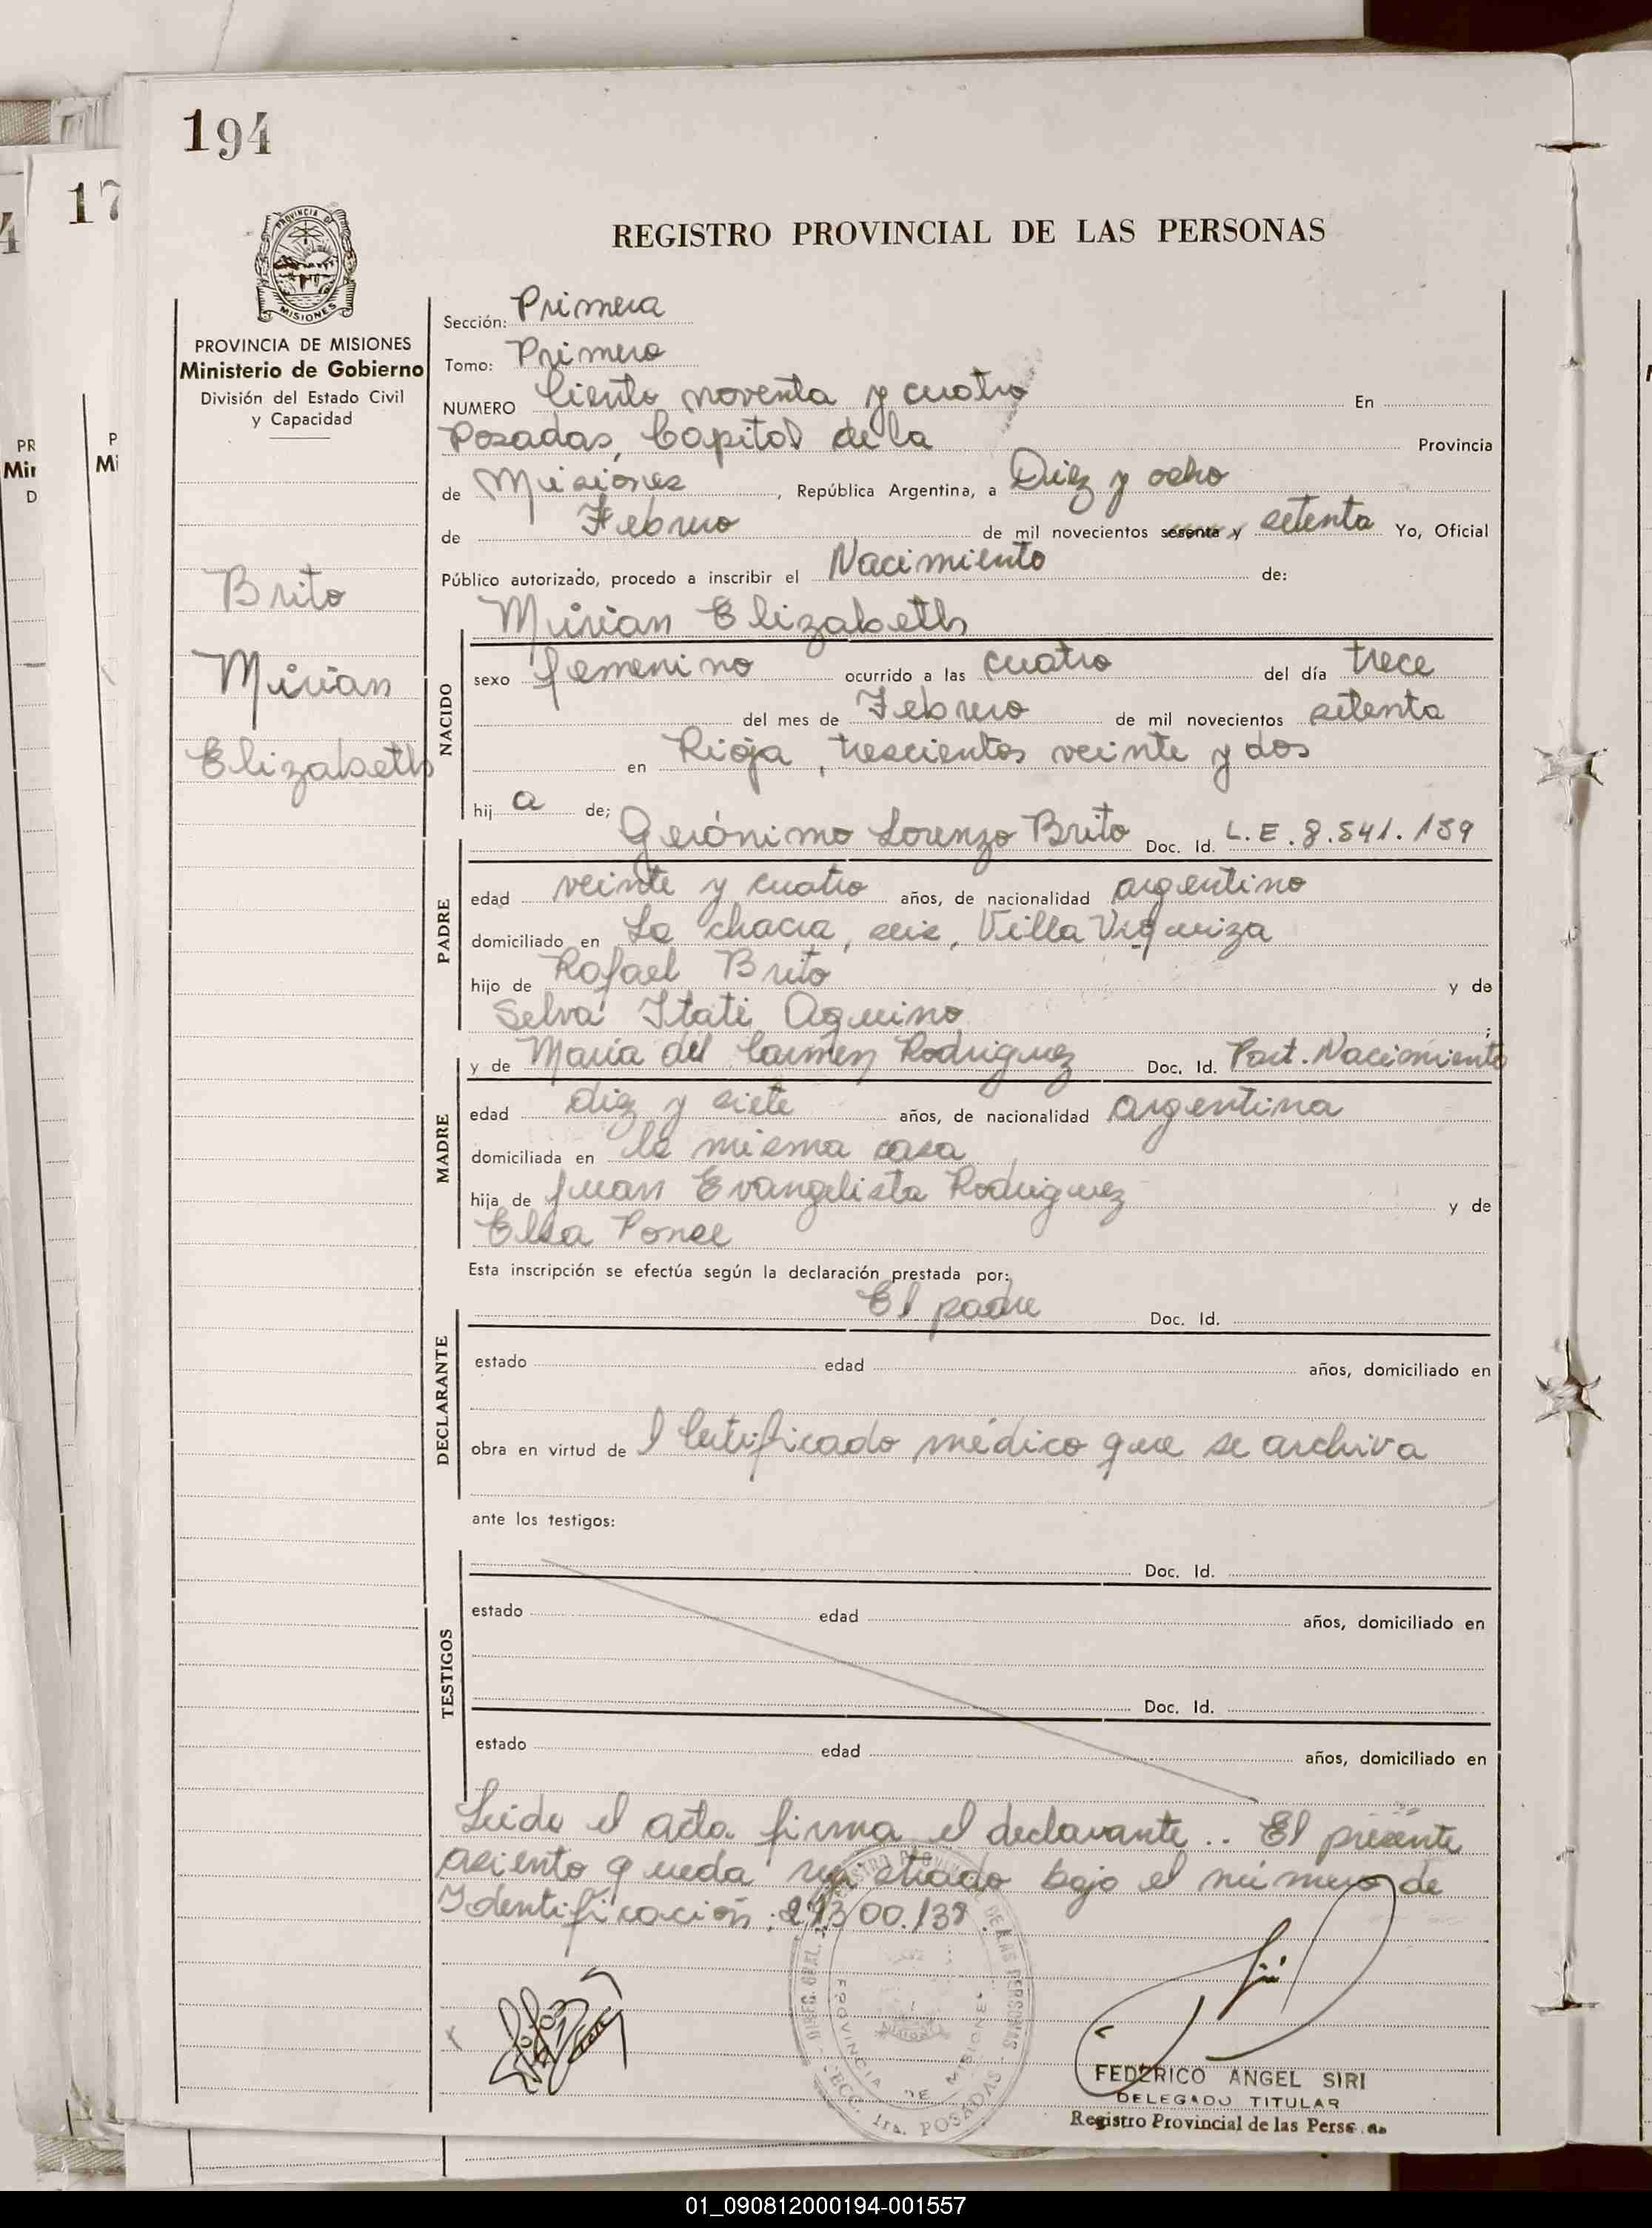 194
17
4
REGISTRO PROVINCIAL DE LAS PERSONAS
PROVINCIA DE
MISIONES
PROVINCIA DE MISIONES
Ministerio de Gobierno
División del Estado Civil
y Capacidad
Brito
Mirian
Elizabeth
Sección: Primera
Tomo: Primero
NUMERO Ciento noventa y cuatro En
Posadas, Capital de la Provincia
de Misiones, República Argentina, a Diez y ocho
de Febrero de mil novecientos sesenta y setenta Yo, Oficial
Público autorizado, procedo a inscribir el Nacimiento de:
Mirian Elizabeth
NACIDO
sexo femenino ocurrido a las cuatro del día trece
del mes de Febrero de mil novecientos setenta
en Rioja, trescientos veinte y dos
hij a de;
Gerónimo Lorenzo Brito Doc. Id. L.E. 8.541.139
PADRE
edad veinte y cuatro años, de nacionalidad argentino
domiciliado en La chacra, seis, Villa Urquiza
hijo de Rafael Brito y de
Selva Itati Aquino ;
y de Maria del Carmen Rodriguez Doc. Id. Part. Nacimiento
MADRE
edad diez y siete años, de nacionalidad argentina
domiciliada en la misma casa
hija de Juan Evangelista Rodriguez y de
Elsa Ponce
Esta inscripción se efectúa según la declaración prestada por:
El padre Doc. Id.
DECLARANTE
estado edad años, domiciliado en
obra en virtud de l Certificado médico que se archiva
ante los testigos:
TESTIGOS
Doc. Id.
estado edad años, domiciliado en
Doc. Id.
estado edad años, domiciliado en
Leida el acta firma el declarante.. El presente
asiento queda registrado bajo el número de
Identificación:
PROVINCIA DE MISIONES
POSADAS
FEDERICO ANGEL SIRI
DELEGADO TITULAR
Registro Provincial de las Personas
01_090812000194-001557